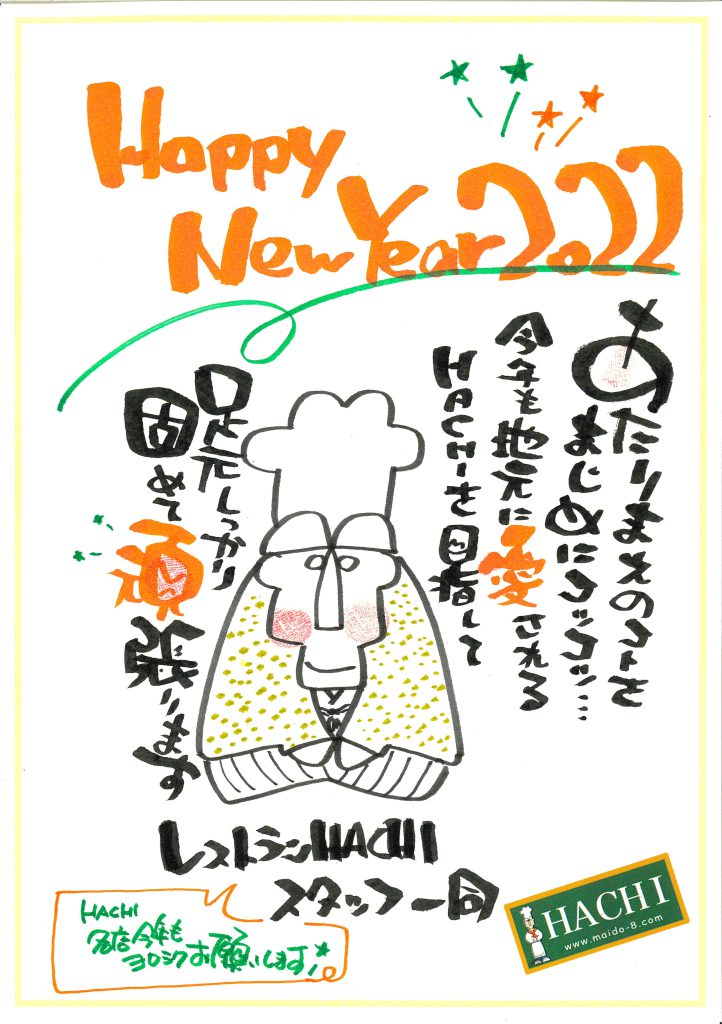 Happy
New Year 2022
あたりまえのコトを
まじめにコツコツ…
今年も地元に愛される
HACHIを目指して
足元しっかり
固めて頑張ります
レストランHACHI
スタッフ一同
HACHI
各店今年も
ヨロシクお願いします!
HACHI
www.maido-8.com